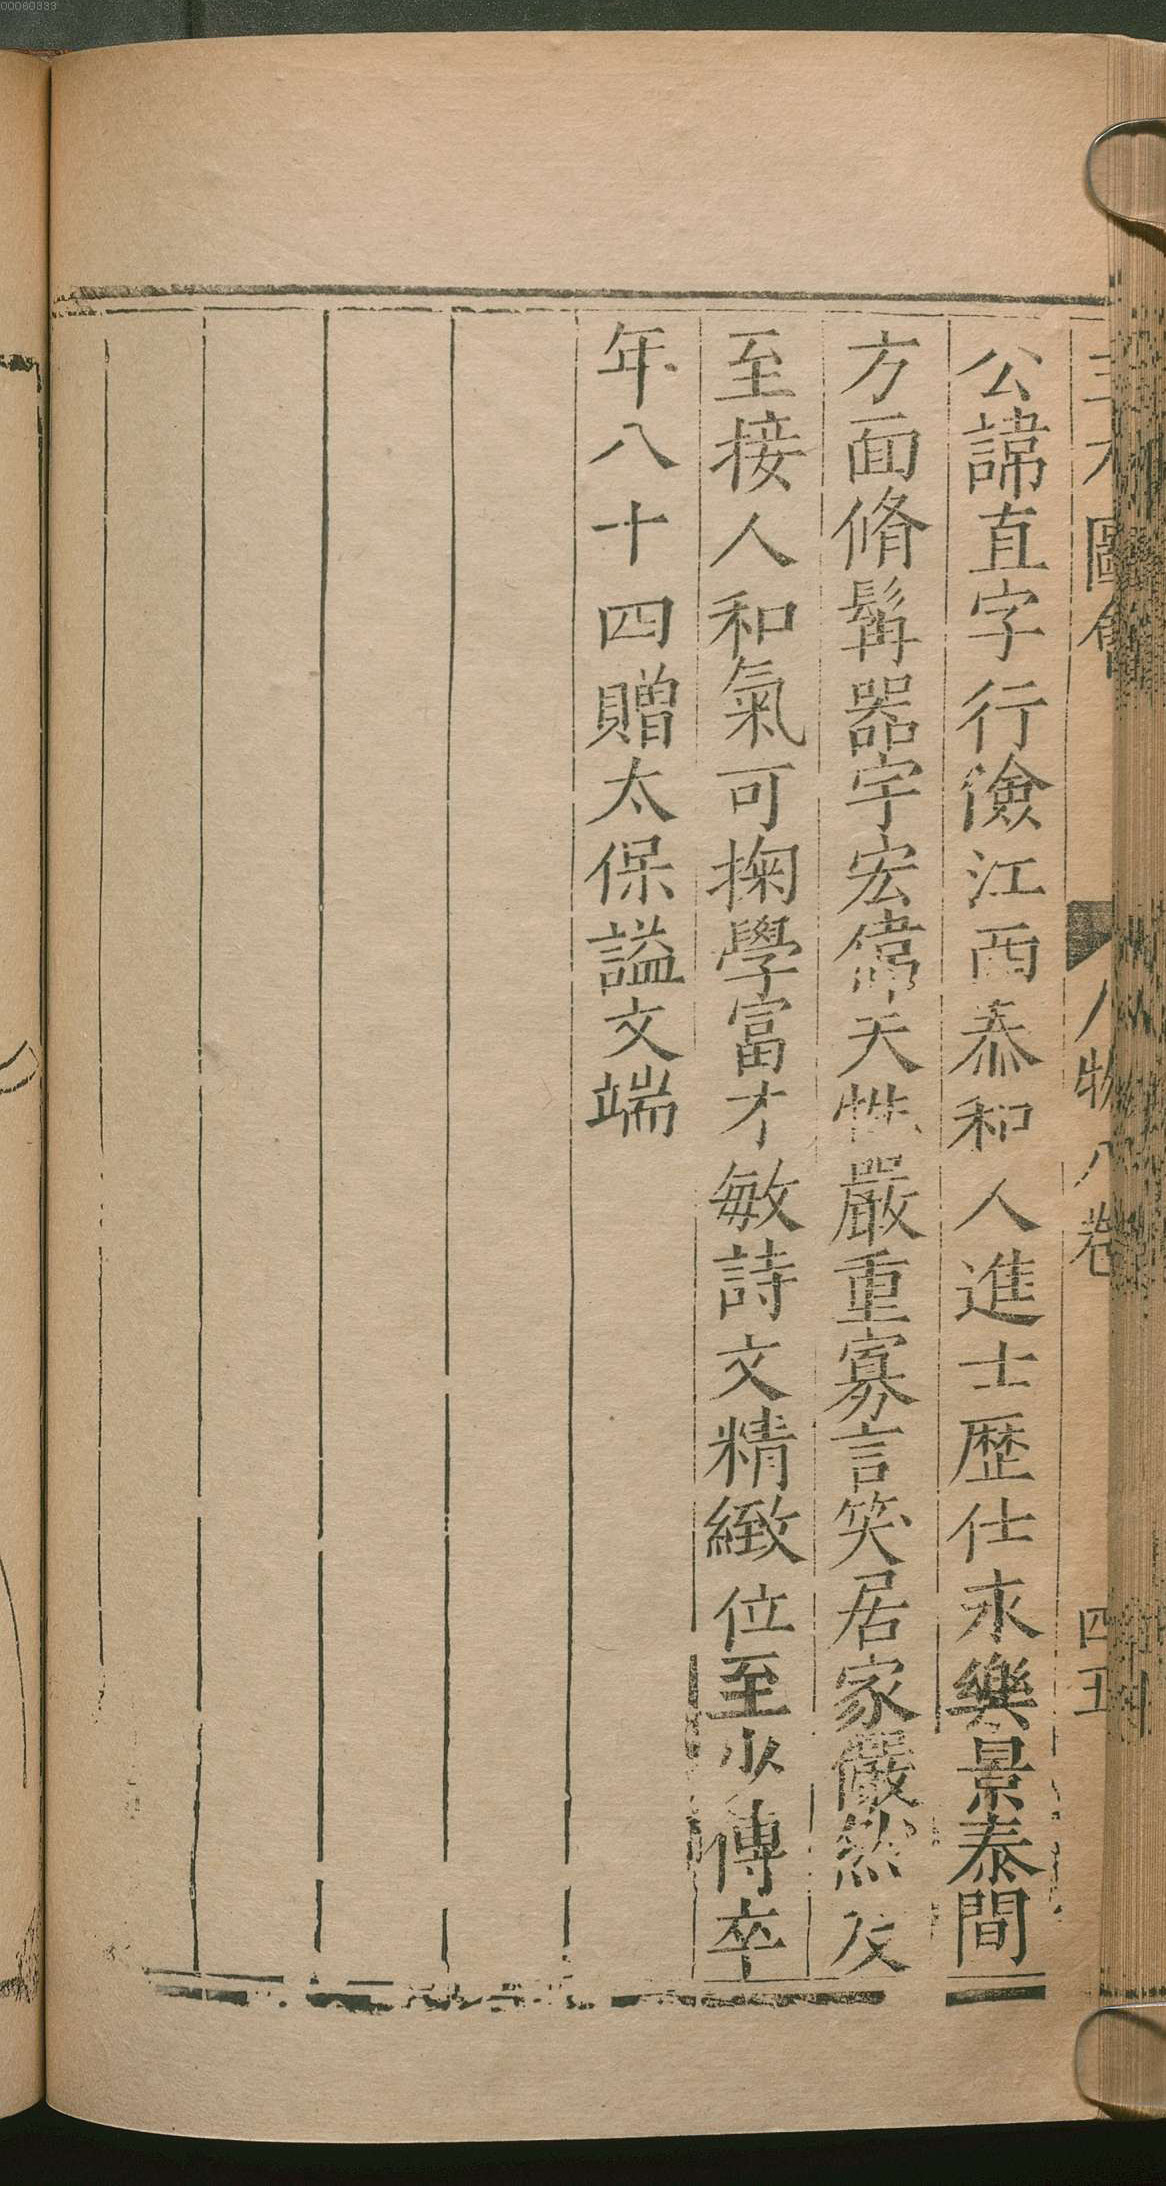 00060333
三才圖會 人物八卷 四五
公諱直字行儉江西泰和人進士歷仕永樂景泰間
方面脩髯器宇宏偉天性嚴重寡言笑居家儼然及
至接人和氣可掬學富才敏詩文精緻位至少傅卒
年八十四贈太保謚文端